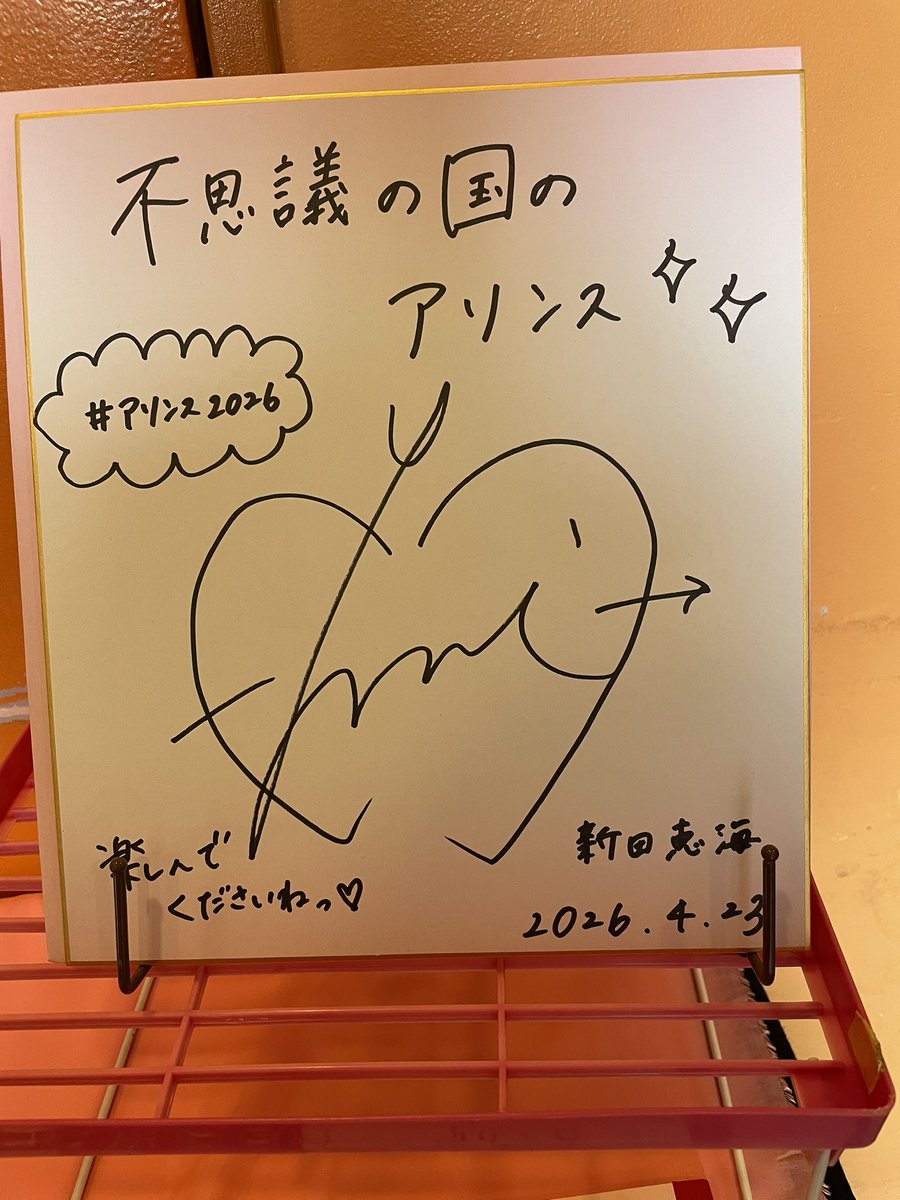 不思議の国の
アリンス
#アリンス2026
楽しんで
くださいねっ♡
新田恵海
2026.4.23